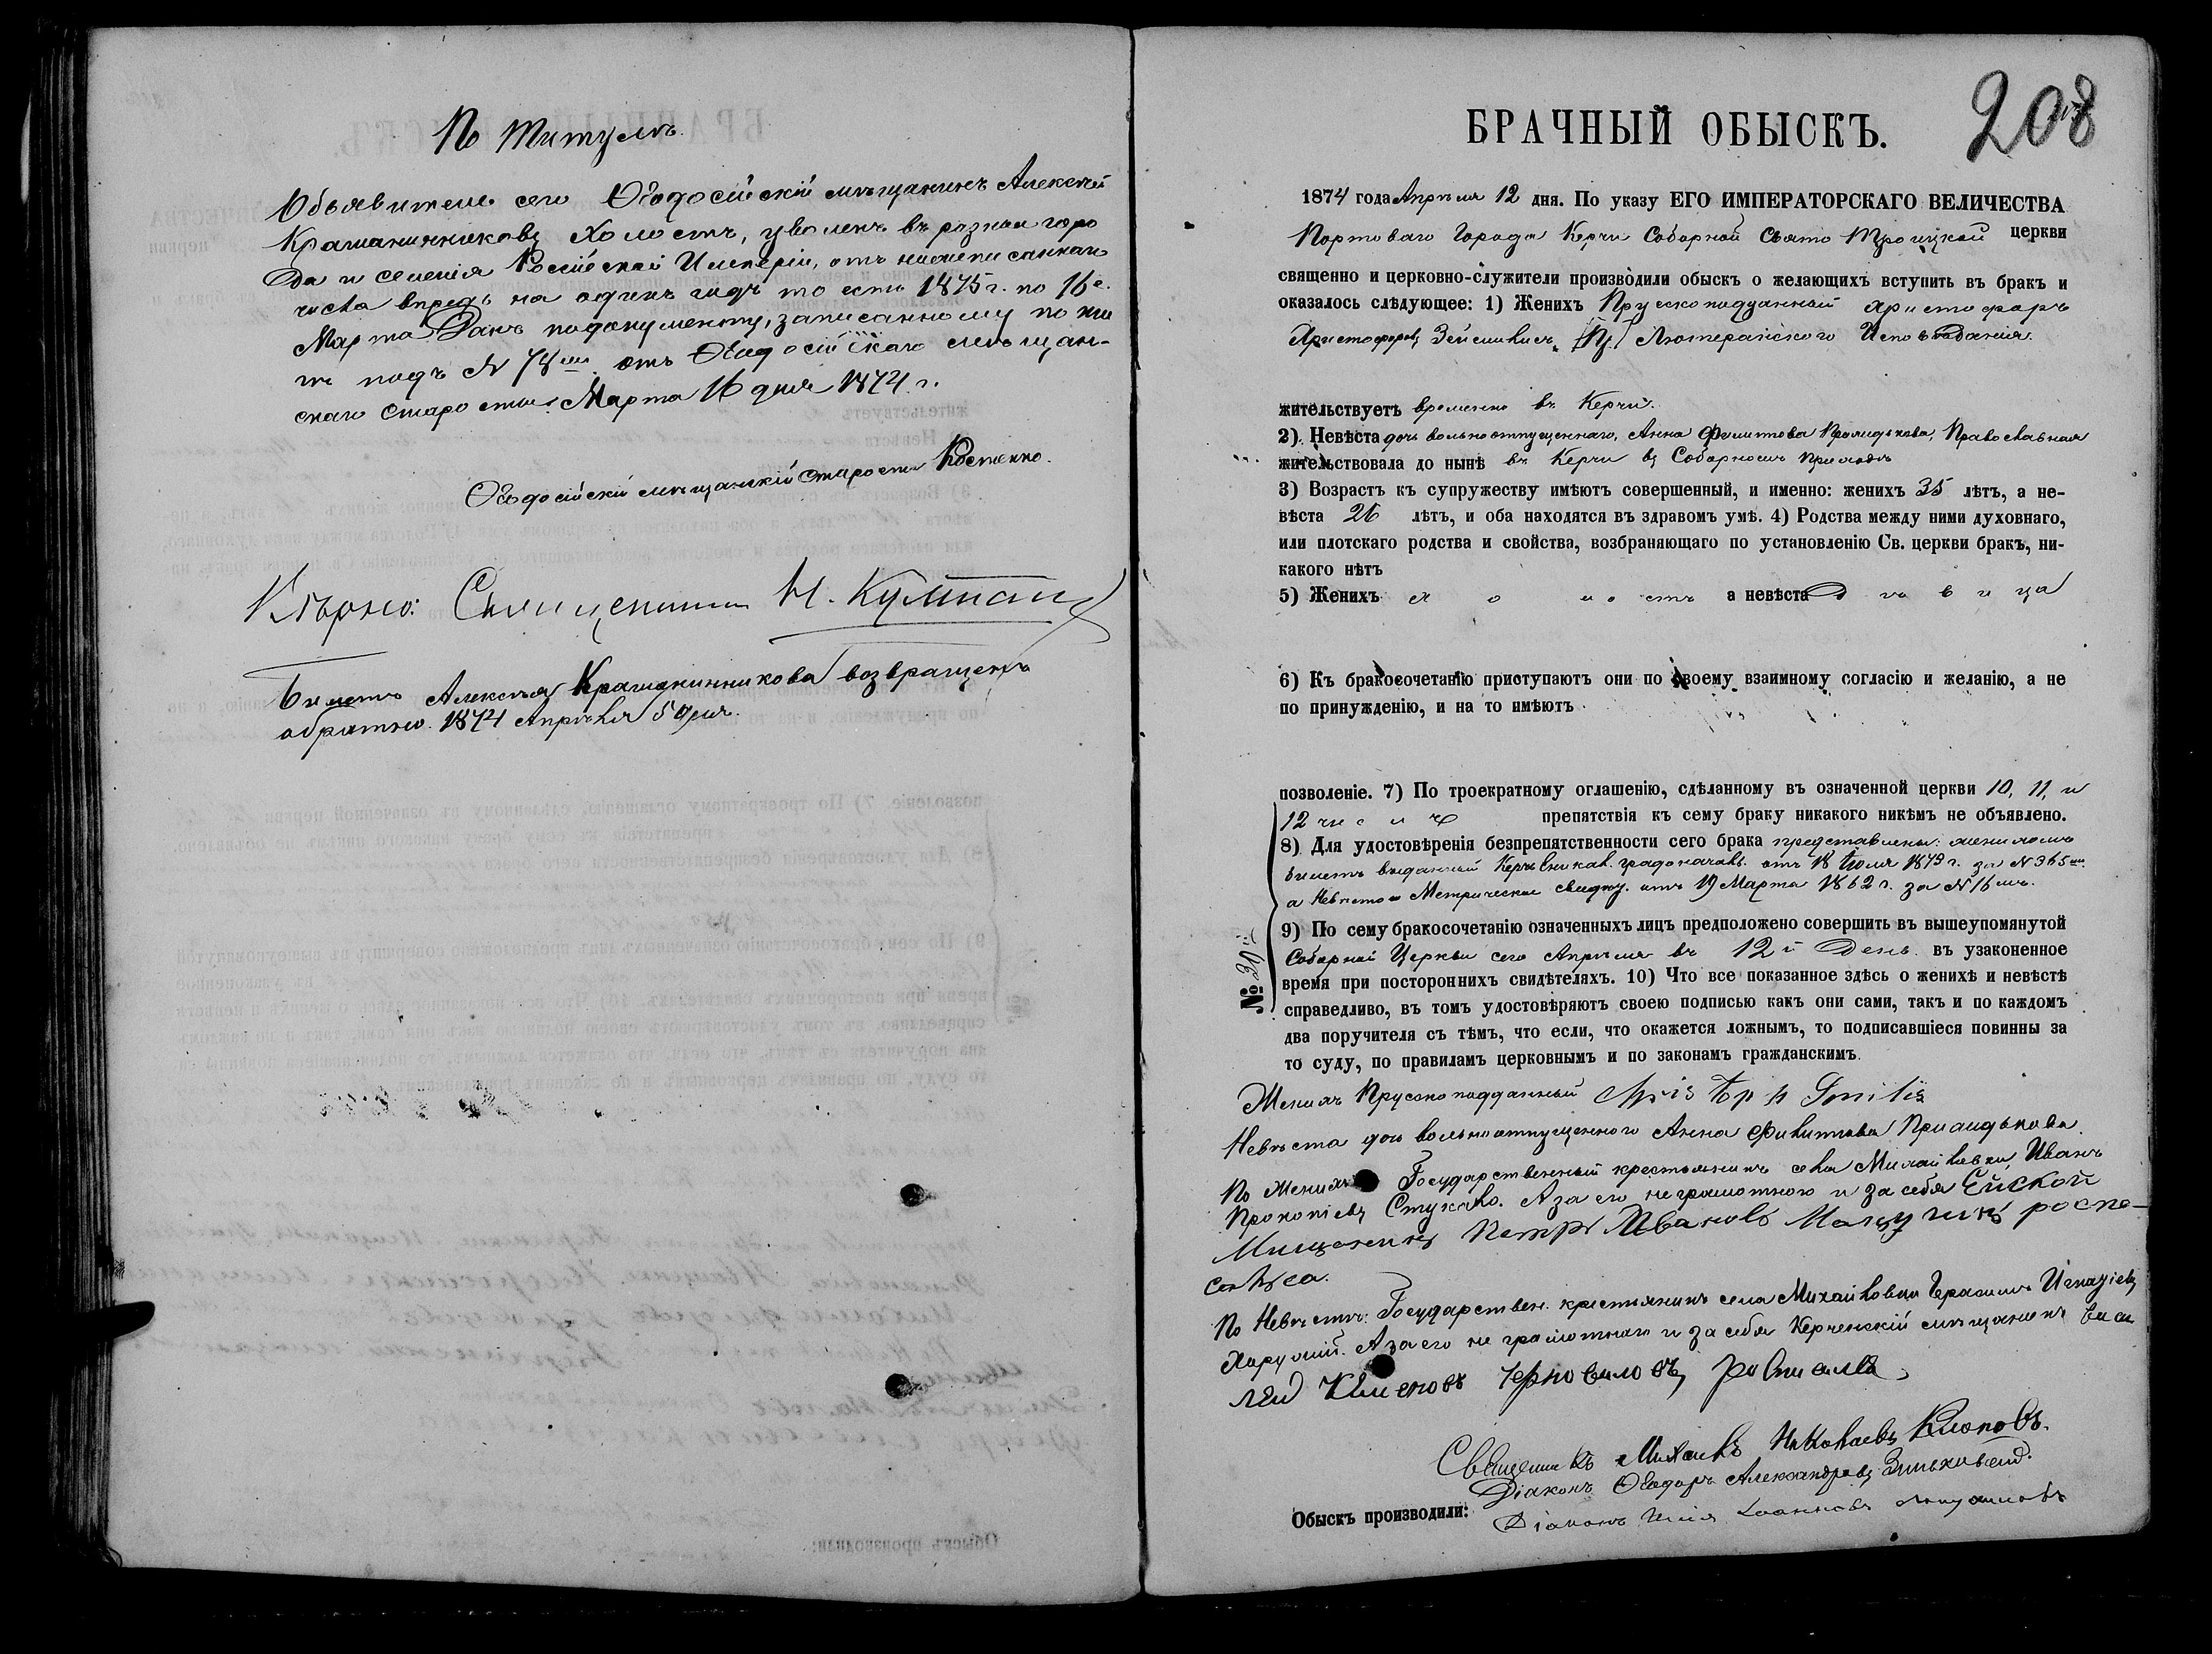 По титулѣ
Объявитель сего Ѳеодосійскій мѣщанинъ Алексѣй
Крашанинниковъ Холостъ, уволенъ въ разные горо
да и селенія Россійской Имперіи, отъ нижеписаннаго
числа впредь на одинъ годъ то есть 1875 г. по 16е.
Марта Данъ подокументу, записанному по кни
ге подъ № 78мъ. отъ Ѳеодосійскаго мѣщан-
скаго Старосты. Марта 16 дня 1874 г.
Ѳеодосійскій мѣщанскій Староста Костенко.
Вѣрно: Священникъ Н.
Билетъ Алексѣя Крашанинникова возвращенъ
обратно. 1874 Апрѣля 5 дня.
208
БРАЧНЫЙ ОБЫСКЪ.
1874 года Апрѣля 12 дня. По указу ЕГО ИМПЕРАТОРСКАГО ВЕЛИЧЕСТВА
Портоваго Города Керчи Соборной Свято Троицкой церкви
священно и церковно-служители производили обыскъ о желающихъ вступить въ бракъ и
оказалось слѣдующее: 1) Женихъ Прусско подданный Христофоръ
Христофоровъ Лютеранскаго Исповѣданія.
жительствуетъ временно въ Керчи.
2) Невѣста дочь вольноотпущеннаго, Анна Филитова Православная
жительствовала до нынѣ въ Керчи въ Соборномъ приходѣ
3) Возрастъ къ супружеству имѣютъ совершенный, и именно: женихъ 35 лѣтъ, а не-
вѣста 26 лѣтъ, и оба находятся въ здравомъ умѣ. 4) Родства между ними духовнаго,
или плотскаго родства и свойства, возбраняющаго по установленію Св. церкви бракъ, ни-
какого нѣтъ
5) Женихъ холостъ а невѣста Дѣвица
6) Къ бракосочетанію приступаютъ они по своему взаимному согласію и желанію, а не
по принужденію, и на то имѣютъ
позволеніе. 7) По троекратному оглашенію, сдѣланному въ означенной церкви 10, 11, и
12 числѣ препятствія къ сему браку никакого никѣмъ не объявлено.
8) Для удостовѣренія безпрепятственности сего брака представлены: женихомъ
билетъ выданный градоначаль. отъ 18 Іюля 1873 г. за № 365мъ.
а Невѣстою Метрическое свидѣт. отъ 19 Марта 1862 г. за № 16мъ.
9) По сему бракосочетанію означенныхъ лицъ предположено совершить въ вышеупомянутой
Соборной Церкви сего Апрѣля въ 12й День въ узаконенное
время при постороннихъ свидѣтеляхъ. 10) Что все показанное здѣсь о женихѣ и невѣстѣ
справедливо, въ томъ удостовѣряютъ своею подписью какъ они сами, такъ и по каждомъ
два поручителя съ тѣмъ, что если, что окажется ложнымъ, то подписавшіеся повинны за
то суду, по правиламъ церковнымъ и по законамъ гражданскимъ.
№ 30й
Женихъ Прусско подданный
Невѣста дочь вольноотпущеннаго Анна Филитова
По Женихѣ Государственный крестьянинъ села Михайловки, Иванъ
Прокопіевъ Стукало. А за его неграмотного и за себя Ейской
Мищенинъ Петръ Ивановъ роспе-
салъса.
По Невѣстѣ: Государствен. крестьянинъ села Михайловки Герасимъ Игнатіевъ
А за его не грамотнаго и за себя Керченскій мѣщанинъ Васи
лей Черновиловъ росписался
Священникъ Михаилъ Николаевъ Клоповъ.
Діаконъ Ѳеодоръ Александровъ Зиньковскій.
Обыскъ производили: Діаконъ Илія Іоанновъ